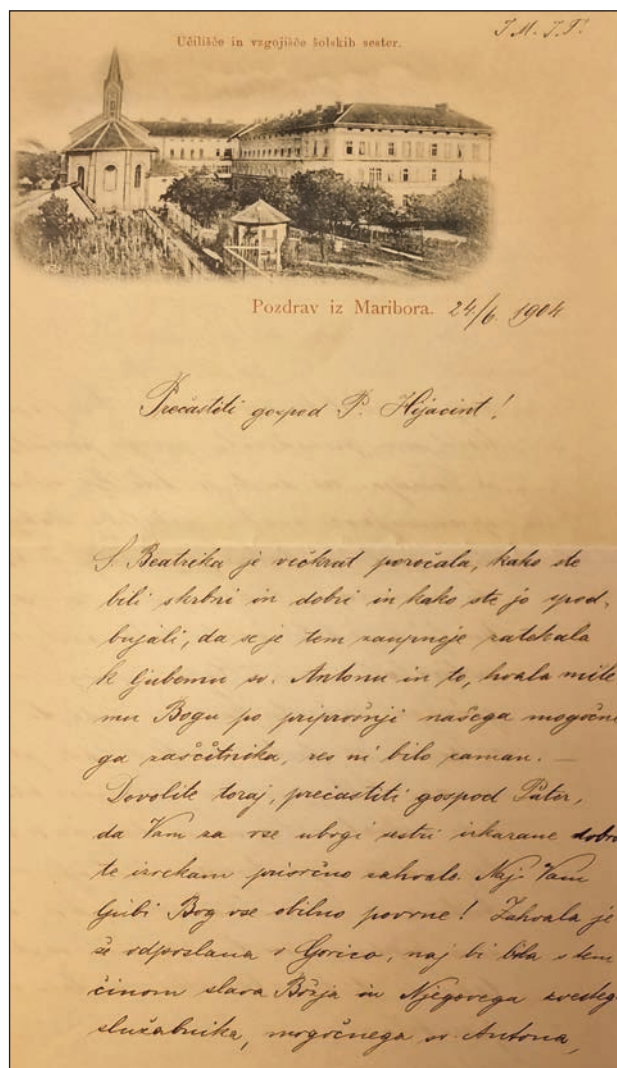 Učilišče in vzgojišče šolskih sester.
J. M. J. F!
Pozdrav iz Maribora. 24/6. 1904
Prečastiti gospod P. Hijacint!
S. Beatrika je večkrat poročala, kako ste
bili skrbni in dobri in kako ste jo spod-
bujali, da se je tem zaupneje zatekala
k ljubemu sv. Antonu in to, hvala mile
mu Bogu po priprošnji našega mogočne
ga zaščitnika, res ni bilo zaman. —
Dovolite toraj, prečastiti gospod Pater,
da Vam za vse ubogi sestri izkazane dobro
te izrekam prisrčno zahvalo. Naj Vam
ljubi Bog vse obilno povrne! Zahvala je
že odposlana v Gorico, naj bi bila s tem
činom slava Božja in Njegovega zvestega
služabnika, mogočnega sv. Antona,